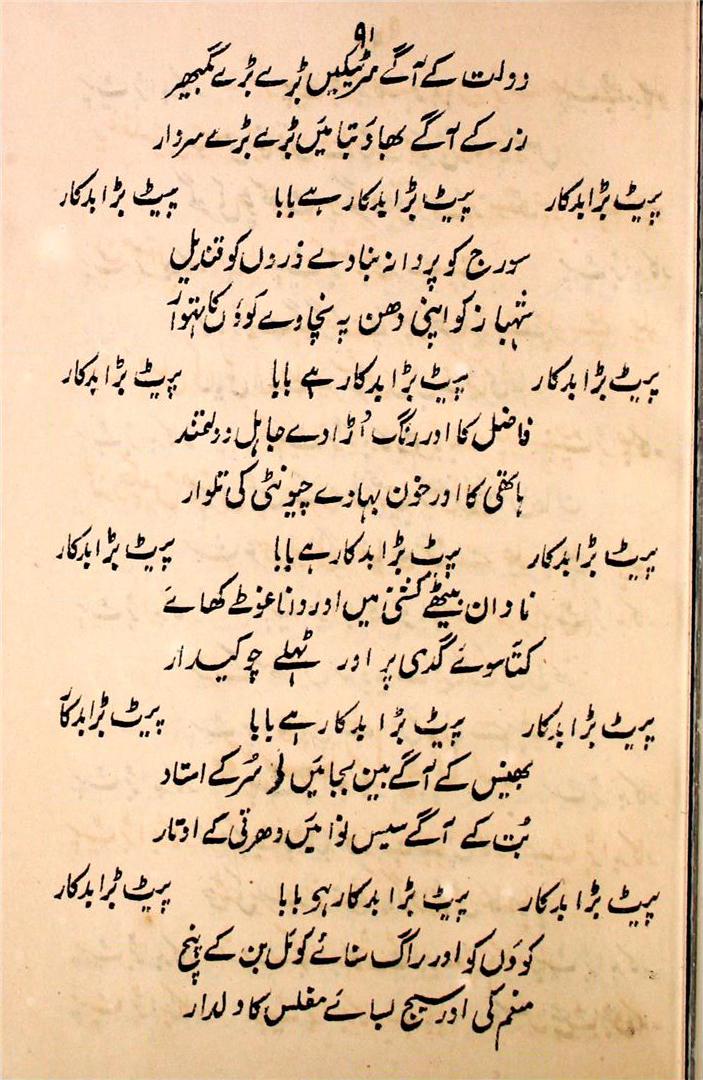 ۹۱
دولت کے آگے سر ٹیکیں بڑے بڑے گمبھیر
زر کے آگے بھاؤ بتائیں بڑے بڑے سردار
پیٹ بڑا بدکار پیٹ بڑا بدکار ہے بابا پیٹ بڑا بدکار
سورج کو پروانہ بنادے ذروں کو قندیل
شہباز کو اپنی دھن پہ نچاوے کوؤں کا تہوار
پیٹ بڑا بدکار پیٹ بڑا بدکار ہے بابا پیٹ بڑا بدکار
فاضل کا اور رنگ اُڑادے جاہل دولتمند
ہاتھی کا اور خون بہادے چیونٹی کی تلوار
پیٹ بڑا بدکار پیٹ بڑا بدکار ہے بابا پیٹ بڑا بدکار
نادان بیٹھے کشتی میں اور دانا غوطے کھائے
کتّا سوئے گدی پر اور ٹہلے چوکیدار
پیٹ بڑا بدکار پیٹ بڑا بدکار ہے بابا پیٹ بڑا بدکار
بھینس کے آگے بین بجائیں سُر کے استاد
بُت کے آگے سیس نوائیں دھرتی کے اوتار
پیٹ بڑا بدکار پیٹ بڑا بدکار ہے بابا پیٹ بڑا بدکار
کوؤں کو اور راگ سنائے کوئل بن کے پنچ
منعم کی اور سیج بسائے مفلس کا دلدار